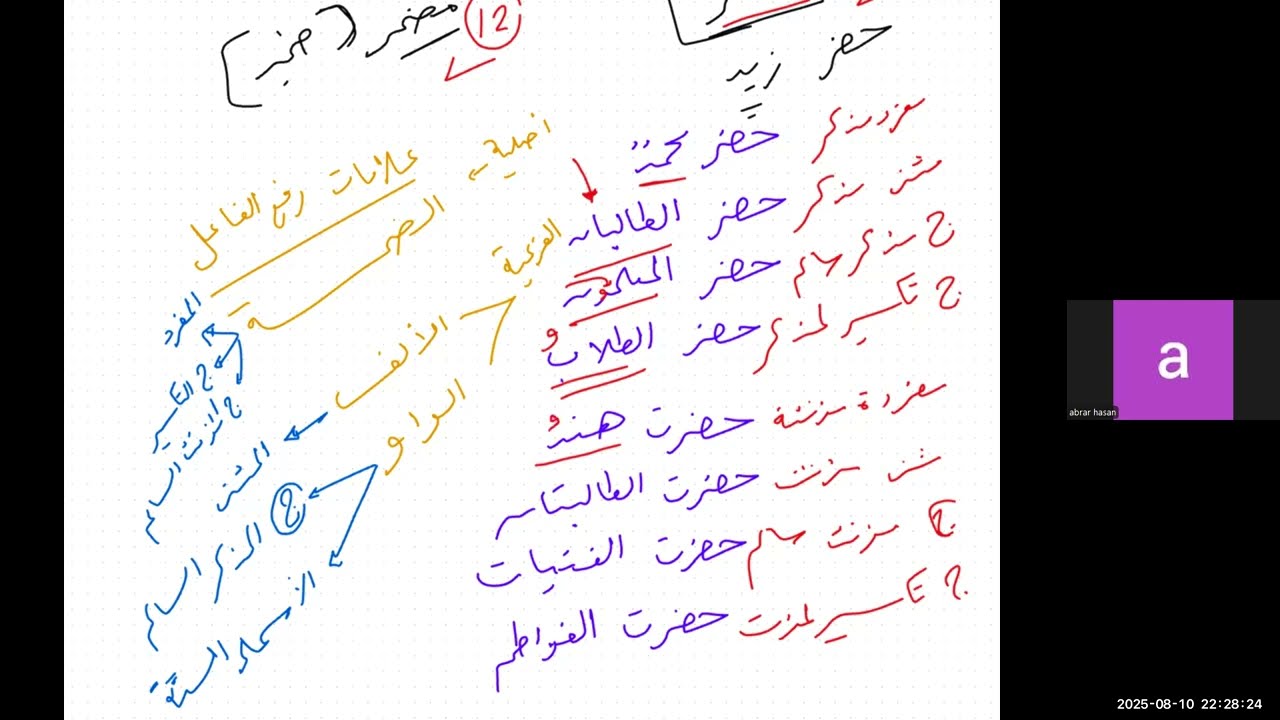 12 مضمر (ضمير)
حضر زيد
مفرد مذكر حضر محمدٌ
مثنى مذكر حضر الطالبان
ج مذكر سالم حضر المسلمون
ج تكسير لمذكر حضر الطلابُ
مفردة مؤنثة حضرت هندُ
مثنى مؤنث حضرت الطالبتان
ج مؤنث سالم حضرت الفتيات
ج تكسير لمؤنث حضرت الفواطم
علامات رفع الفاعل
اصلية
الضمة
المفرد
ج التكسير
ج المؤنث السالم
الفرعية
الألف
المثنى
الواو
ج المذكر السالم
الأسماء الستة
a
abrar hasan
2025-08-10 22:28:24